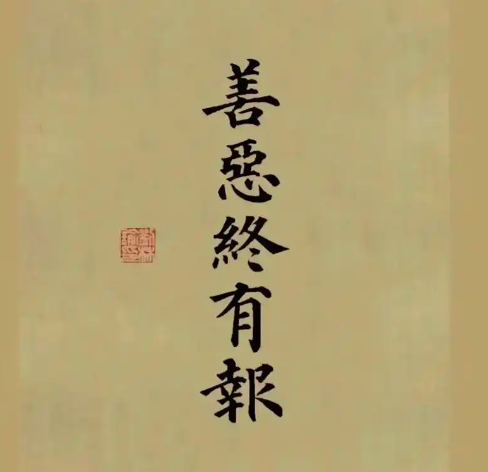 善惡終有報